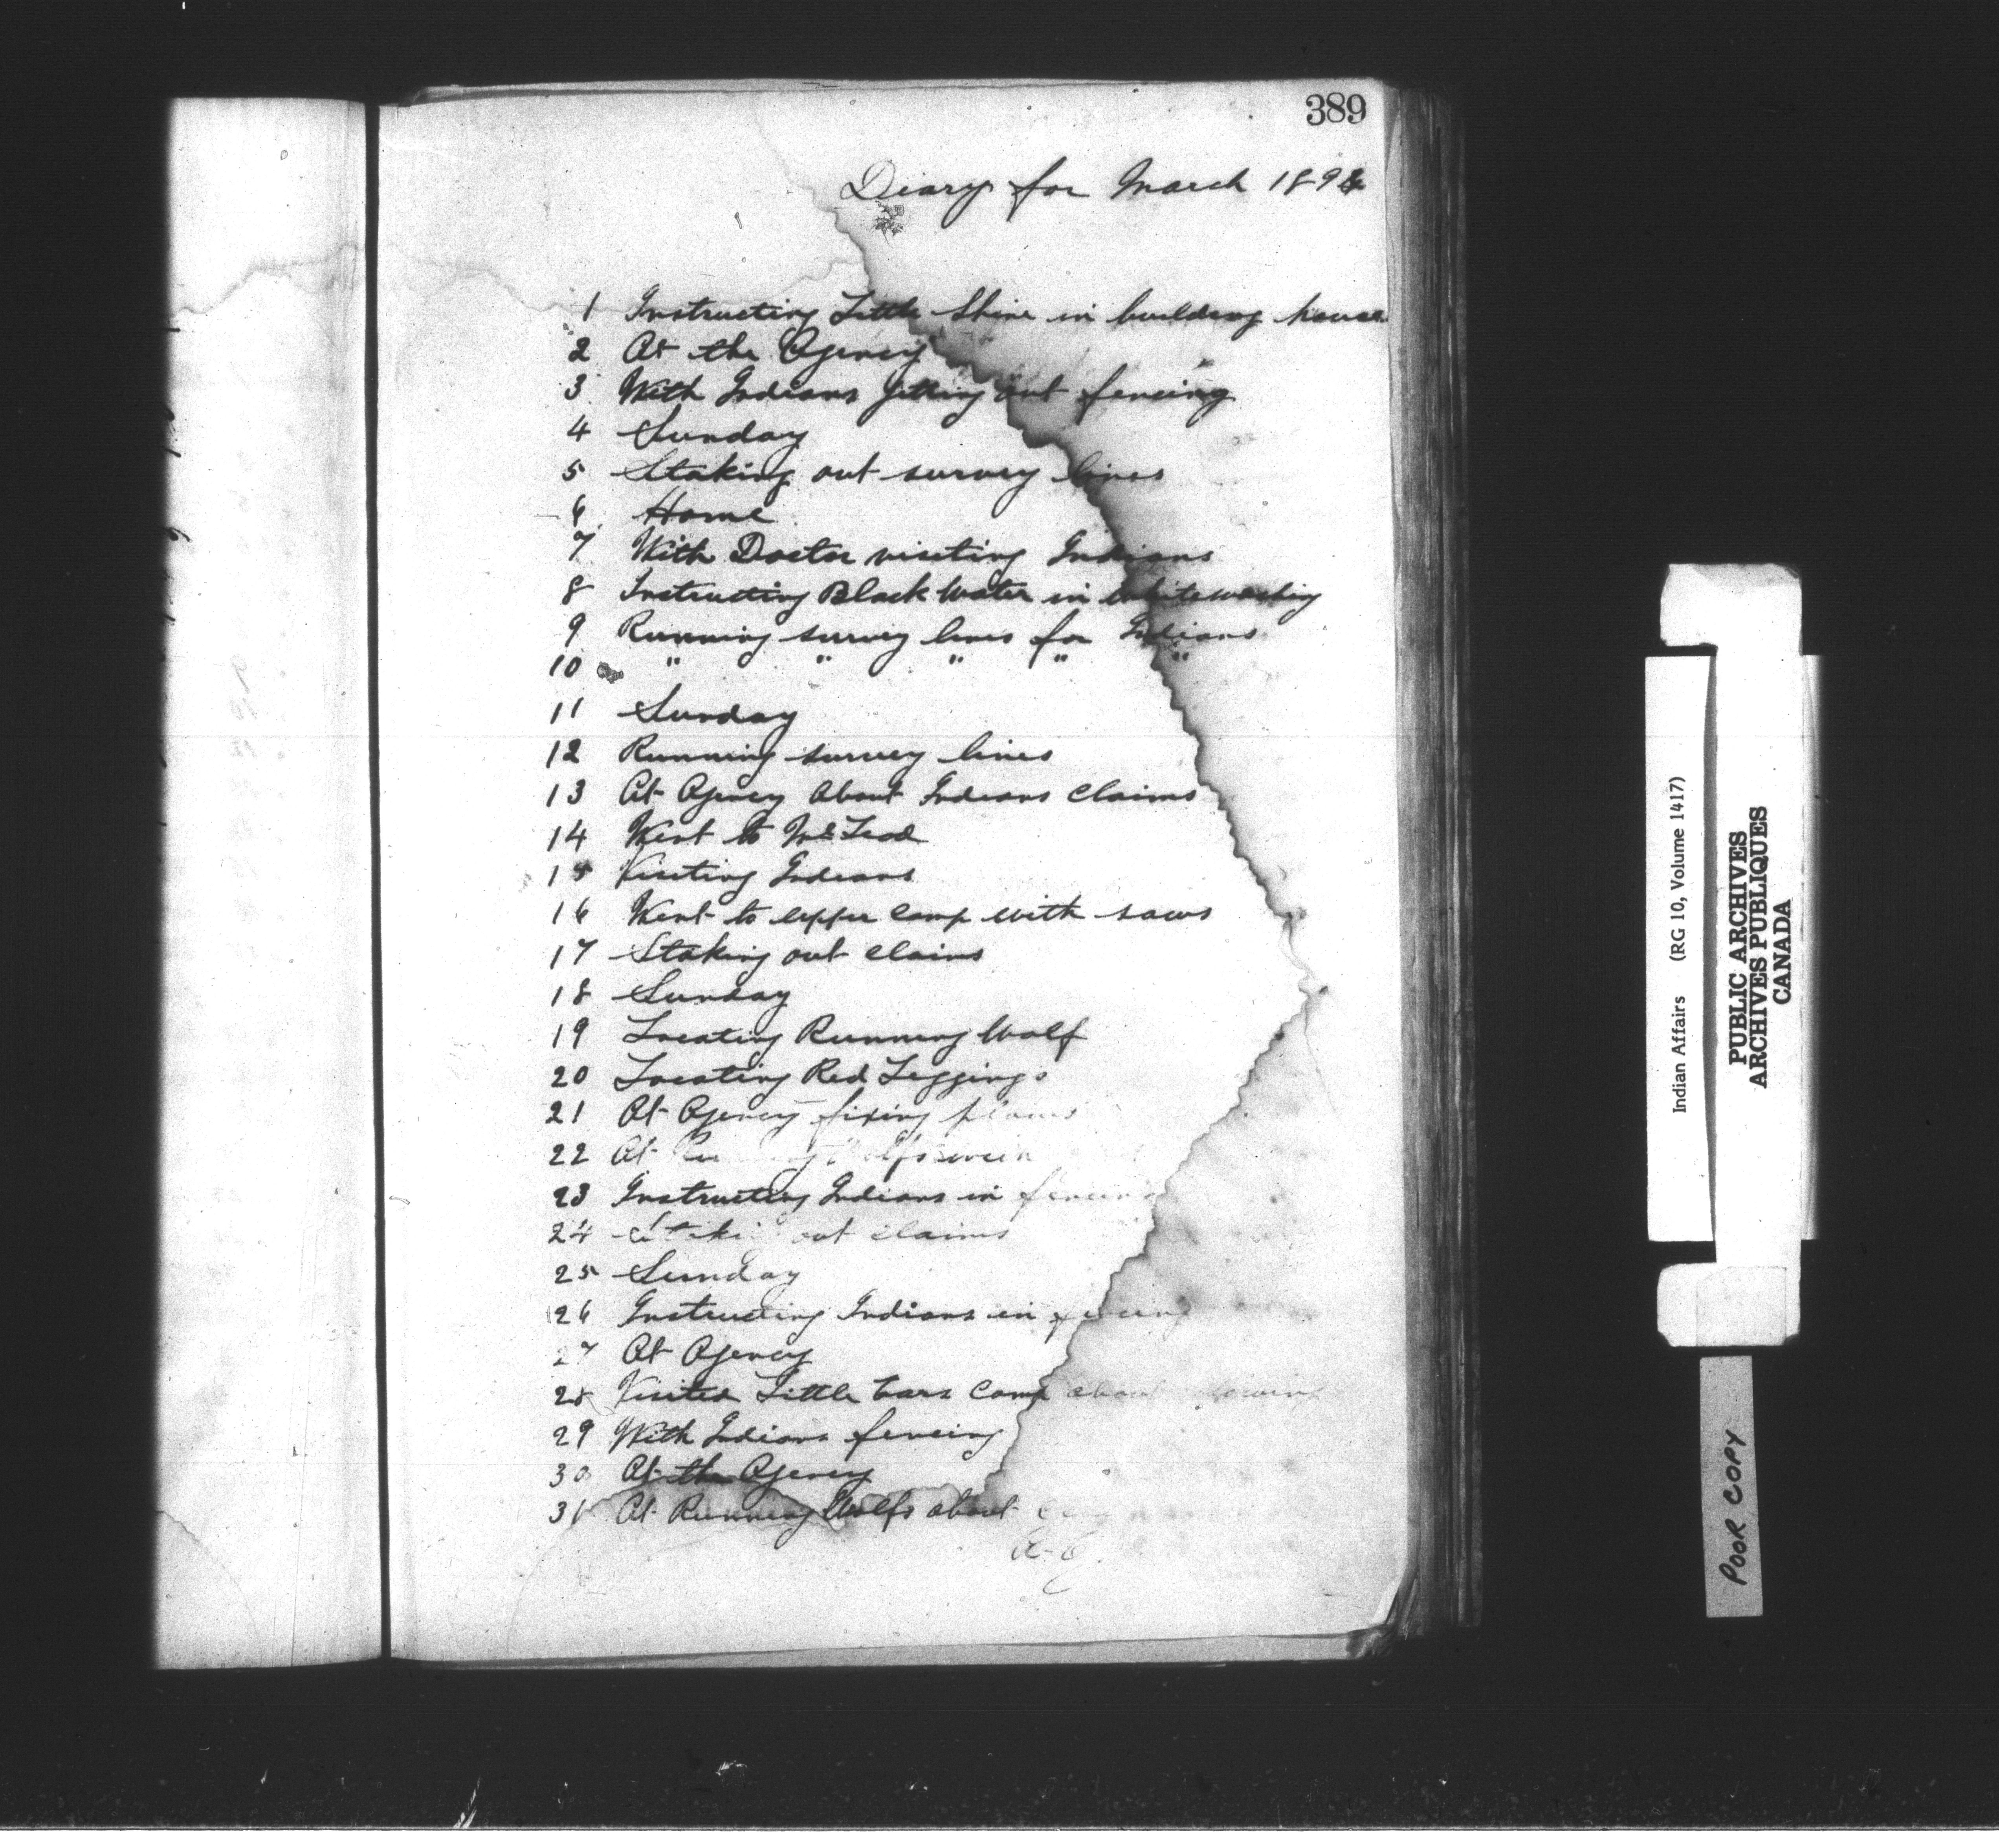 389
Diary for March 1894
1 Instructing Little Shine in building house
2 At the Agency
3 With Indians getting out fencing
4 Sunday
5 Staking out survey lines
6 Home
7 With Doctor visiting Indians
8 Instructing Black Water in whitewashing
9 Running survey lines for Indians
10 " " " " "
11 Sunday
12 Running survey lines
13 At Agency About Indians Claims
14 Went to McLeod
15 Visiting Indians
16 Went to upper camp with saws
17 Staking out claims
18 Sunday
19 Locating Running Wolf
20 Locating Red Leggings
21 At Agency fixing plows
22 At Running Wolfs
23 Instructing Indians in fencing
24 Staking out claims
25 Sunday
26 Instructing Indians in fencing
27 At Agency
28 Visited Little Ears Camp about
29 With Indians fencing
30 At the Agency
31 At Running Wolfs about
Indian Affairs (RG 10, Volume 1417)
PUBLIC ARCHIVES
ARCHIVES PUBLIQUES
CANADA
POOR COPY